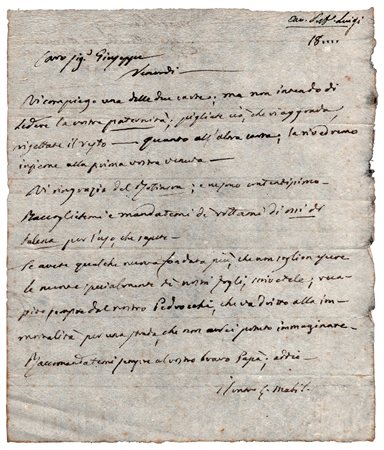 Cav. Luigi
18....
Caro sig.r Giuseppe
Venerdi
Vi compiego una delle due carte; ma non intendo di
ledere la vostra paternità; pigliate ciò, che vi aggrada,
rigettate il resto — quanto all'altra carta, la rivedremo
insieme alla prima vostra venuta —
Vi ringrazio del ; e ne sono contentissimo —
Raccoglietemi e mandatemi de' rottami di ossi di
balena per l'uso, che sapete —
Se avete qualche nuova fondata più, che non sogliono essere
le nuove specialmente di nostri fogli, scrivetela; 
sempre dal nostro Pedrocchi, che va dritto alla im-
mortalità per una strada, che non avrei potuto immaginare —
Raccomandatemi sempre al vostro bravo Papà; addio —
Mabil